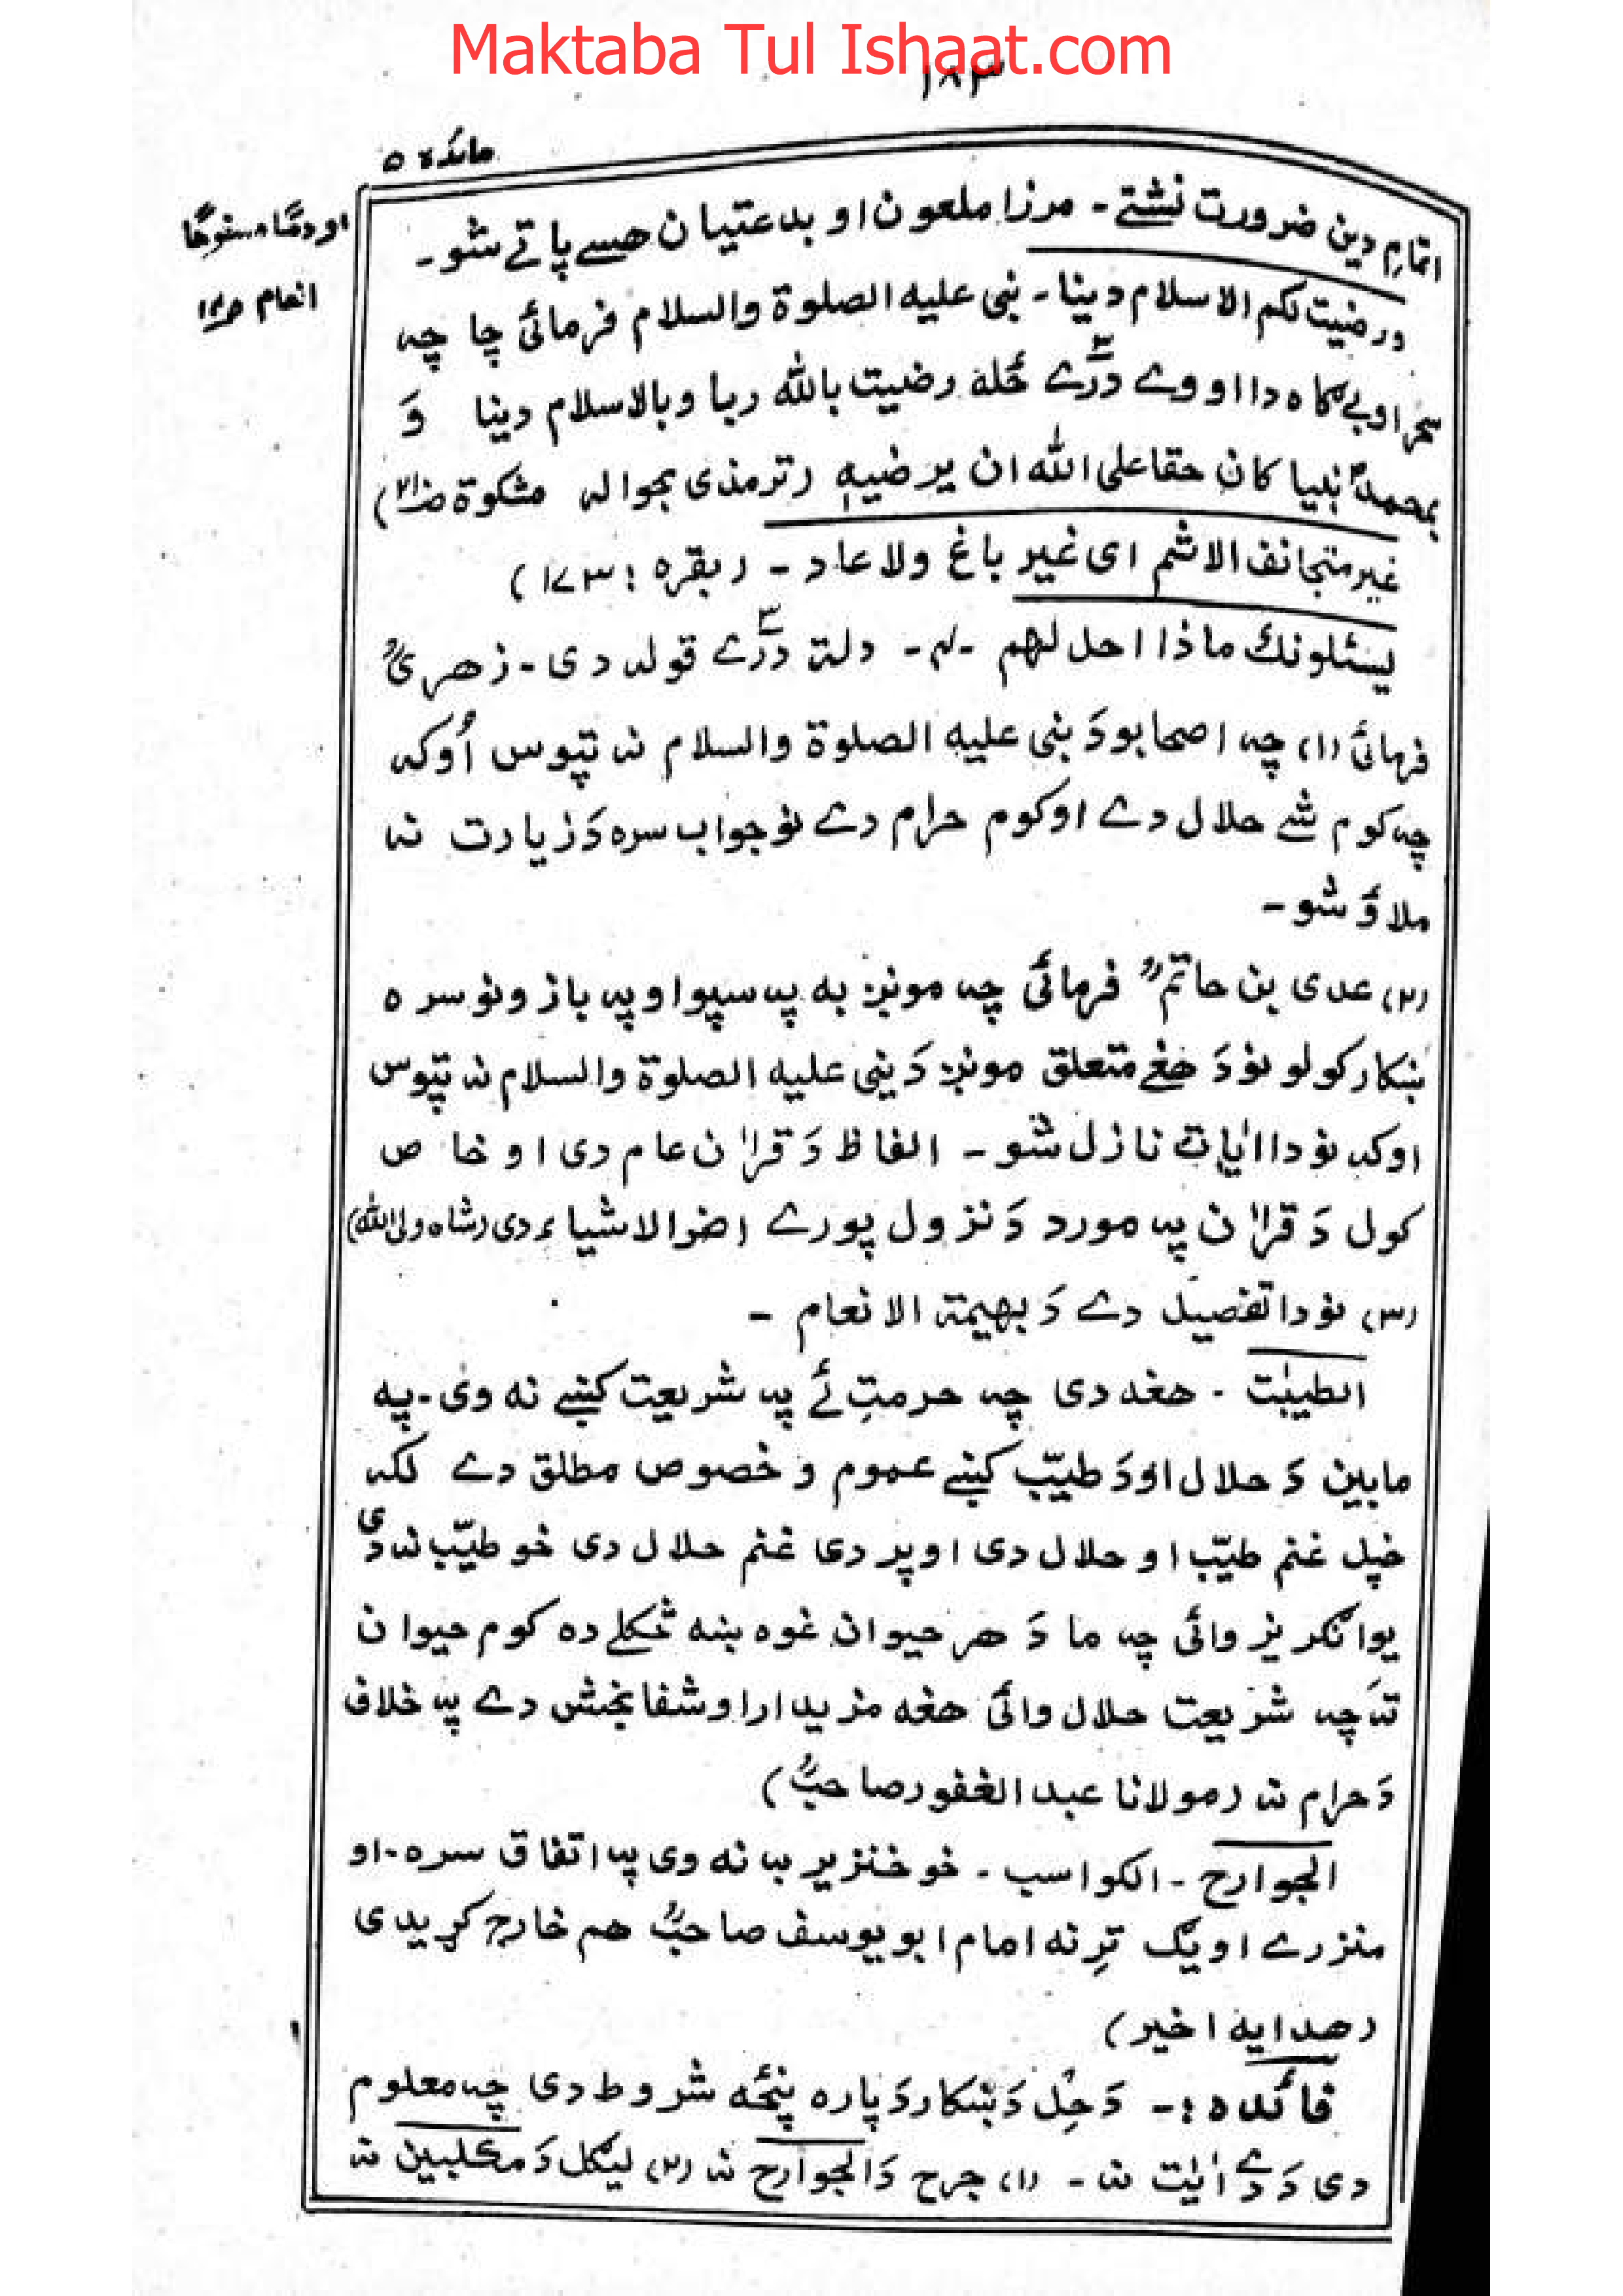 Maktaba Tul Ishaat.com
۱۸۳
مائدہ ۵
اتمامِ دین ضرورت نشتے - مرزا ملعون او بدعتیان ھسے پاتے شو -
ورضیت لکم الاسلام دینا - نبی علیہ الصلوۃ والسلام فرمائی چا چہ
او بے گاہ دا اووے درے ځلہ رضیت باللہ ربا وبالاسلام دینا وَ
بمحمدٍ نبیا کان حقا علی اللہ ان یرضیہ (ترمذی بحوالہ مشکوۃ ص۲۱)
غیر متجانف الاثم ای غیر باغ ولا عاد - (بقرہ : ۱۷۳)
یسئلونک ماذا احل لهم - دلتہ درے قولہ دی - زھریؒ
فرمائی (۱) چہ اصحابو دَ نبی علیہ الصلوۃ والسلام نہ تپوس اُوکہ
چہ کوم شے حلال دے اوکوم حرام دے نو جواب سرہ دَ زیادت نہ
ملاؤ شو -
(۲) عدی بن حاتمؓ فرمائی چہ مونږ بہ پہ سپو او پہ بازونو سرہ
ښکار کولو نو دَ ھغے متعلق مونږ دَ نبی علیہ الصلوۃ والسلام نہ تپوس
اوکہ نو دا اٰیات نازل شو - الفاظ دَ قراٰن عام دی او خاص
کول دَ قراٰن پہ مورد دَ نزول پورے اضر الاشیاء دی (شاہ ولی اللہ)
(۳) نو دا تفصیل دے دَ بھیمۃ الانعام -
الطیبٰت - ھغہ دی چہ حرمتِ ئے پہ شریعت کښے نہ وی - پہ
مابین دَ حلال اودَ طیّب کښے عموم و خصوص مطلق دے لکہ
خپل غنم طیّب او حلال دی او پردی غنم حلال دی خو طیّب نہ دی
یو انگریز وائی چہ ما دَ ھر حیوان غوہ ښہ څکلے دہ کوم حیوان
تہ چہ شریعت حلال وائی ھغہ مزیدار او شفا بخش دے پہ خلاف
دَ حرام نہ (مولانا عبد الغفور صاحبؒ)
الجوارح - الکواسب - خو خنزیر بہ نہ وی پہ اتفاق سرہ - او
منزرے او یګ تِرنہ امام ابو یوسف صاحبؒ ھم خارج کړیدی
(ھدایہ اخیر)
فائدہ :- دَ حِل دَ ښکار دَ پارہ پنځہ شروط دی چہ معلوم
دی دَ دے اٰیٰت نہ - (۱) جرح دَ الجوارح نہ (۲) لیګل دَ مکلبین نہ
انعام